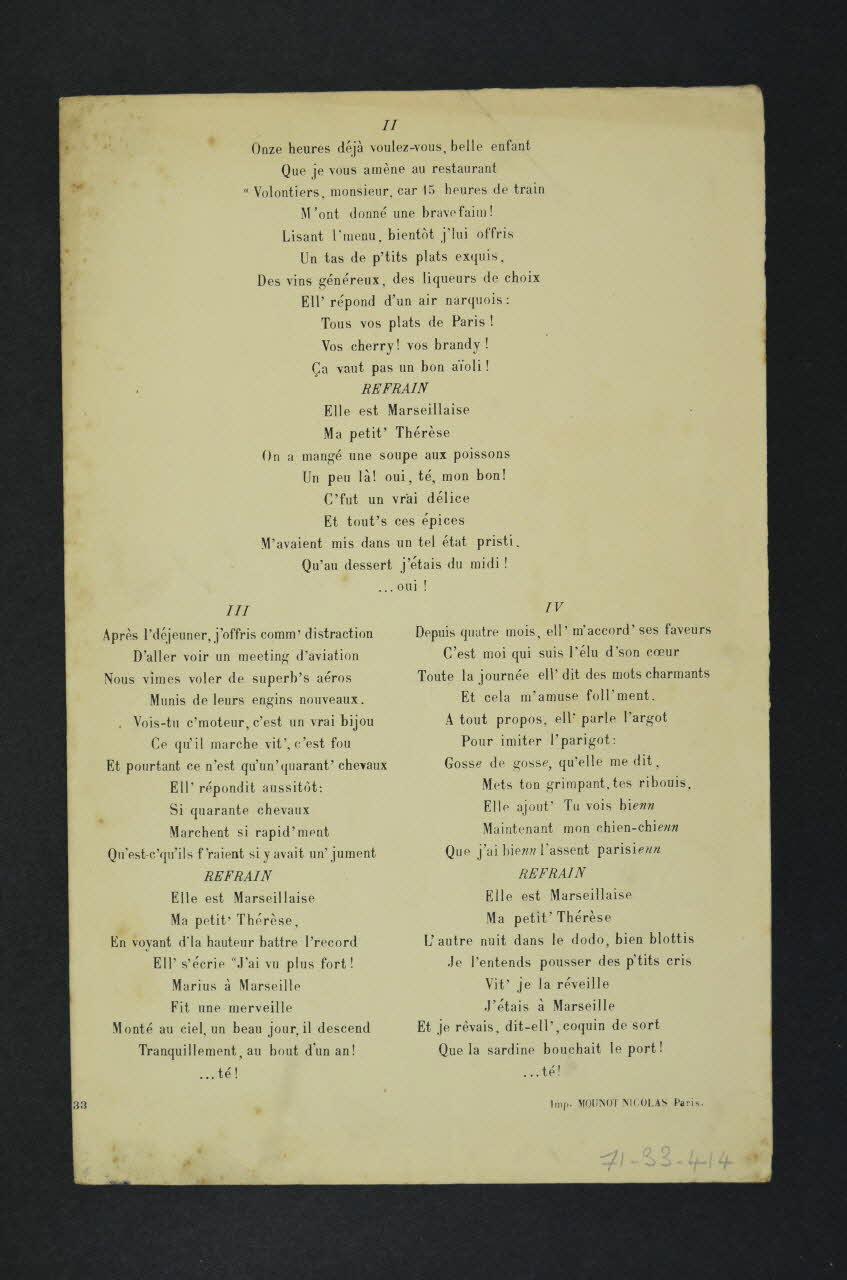 II
Onze heures déjà voulez-vous, belle enfant
Que je vous amène au restaurant
" Volontiers, monsieur, car 15 heures de train
M'ont donné une brave faim!
Lisant l'menu, bientôt j'lui offris
Un tas de p'tits plats exquis,
Des vins généreux, des liqueurs de choix
Ell' répond d'un air narquois:
Tous vos plats de Paris!
Vos cherry! vos brandy!
Ça vaut pas un bon aïoli!
REFRAIN
Elle est Marseillaise
Ma petit' Thérèse
On a mangé une soupe aux poissons
Un peu là! oui, té, mon bon!
C'fut un vrai délice
Et tout's ces épices
M'avaient mis dans un tel état pristi,
Qu'au dessert j'étais du midi!
...oui!
III
Après l'déjeuner, j'offris comm' distraction
D'aller voir un meeting d'aviation
Nous vîmes voler de superb's aéros
Munis de leurs engins nouveaux.
Vois-tu c'moteur, c'est un vrai bijou
Ce qu'il marche vit', c'est fou
Et pourtant ce n'est qu'un' quarant' chevaux
Ell' répondit aussitôt:
Si quarante chevaux
Marchent si rapid'ment
Qu'est-c'qu'ils f'raient si y avait un' jument
REFRAIN
Elle est Marseillaise
Ma petit' Thérèse,
En voyant d'la hauteur battre l'record
Ell' s'écrie "J'ai vu plus fort!
Marius à Marseille
Fit une merveille
Monté au ciel, un beau jour, il descend
Tranquillement, au bout d'un an!
...té!
IV
Depuis quatre mois, ell' m'accord' ses faveurs
C'est moi qui suis l'élu d'son cœur
Toute la journée ell' dit des mots charmants
Et cela m'amuse foll'ment.
A tout propos, ell' parle l'argot
Pour imiter l'parigot:
Gosse de gosse, qu'elle me dit,
Mets ton grimpant, tes ribouis,
Elle ajout' Tu vois bienn
Maintenant mon chien-chienn
Que j'ai bienn l'assent parisienn
REFRAIN
Elle est Marseillaise
Ma petit' Thérèse
L'autre nuit dans le dodo, bien blottis
Je l'entends pousser des p'tits cris
Vit' je la réveille
J'étais à Marseille
Et je rêvais, dit-ell', coquin de sort
Que la sardine bouchait le port!
...té!
33
Imp. MOUNOT NICOLAS Paris.
71-33-414